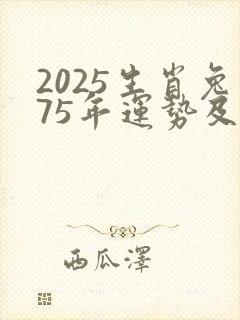 2025生肖兔
75年運势及
西瓜澤